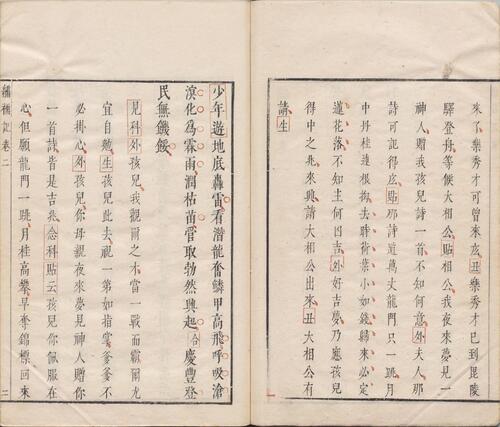 來了樂秀才可曾來麽丑樂秀才已到毘陵
驛登舟等候大相公貼相公我夜來夢見一
神人贈我孩兒詩一首不知何意外夫人那
詩可記得麽貼那詩道萬丈龍門只一跳月
中丹桂連根拗去時荷葉小如錢歸來必定
蓮花落不知主何凶吉外好吉夢乃應孩兒
得中之兆來興請大相公出來丑大相公有
請生
少年遊地底轟雷看潛龍奮鱗甲高飛呼吸滄
溟化爲雲雨潤枯苗管取勃然興起合慶豐登
民無饑餒
見科外孩兒我觀爾之才當一戰而霸爾尤
宜自勉生孩兒此去視一第如指掌爹爹不
必掛心外孩兒你母親夜來夢見神人贈你
一首詩皆是吉兆念科貼云孩兒你佩服在
心但願龍門一跳月桂高攀早奪錦標回來
繡襦記卷二
二